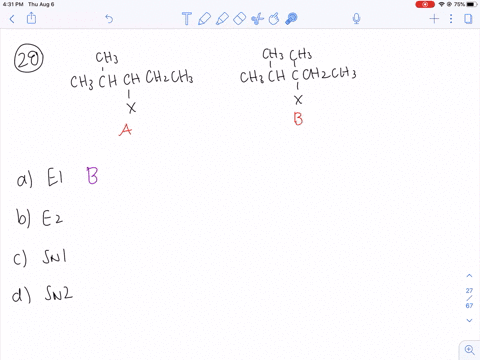 4:31 PM Thu Aug 6
75%
28
CH3
CH3 CH CH CH2CH3
X
A
CH3 CH3
CH3 CH C CH2CH3
X
B
a) E1 B
b) E2
c) SN1
d) SN2
27
/
67